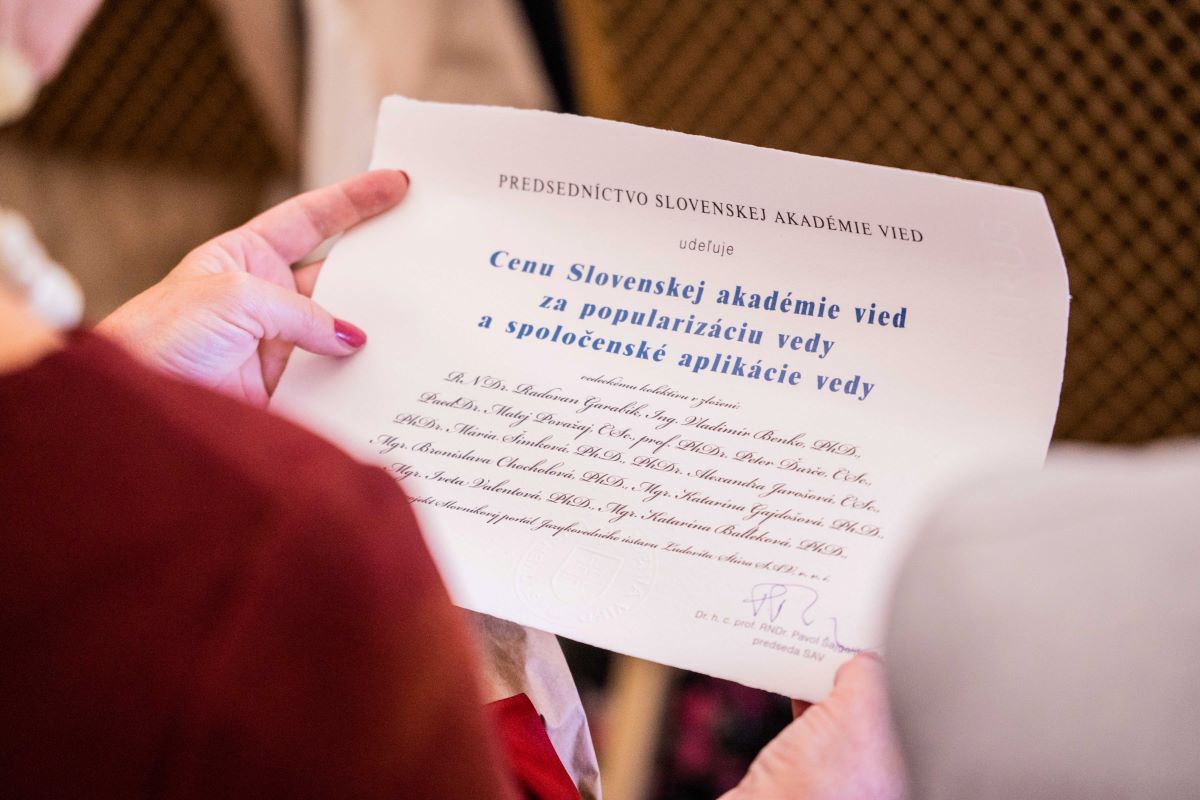 PREDSEDNÍCTVO SLOVENSKEJ AKADÉMIE VIED
udeľuje
Cenu Slovenskej akadémie vied
za popularizáciu vedy
a spoločenské aplikácie vedy
vedeckému kolektívu v zložení:
RNDr. Radovan Garabík, Ing. Vladimír Benko, PhD.,
PaedDr. Matej Považaj, CSc., prof. PhDr. Peter Ďurčo, CSc.,
PhDr. Mária Šimková, PhD., PhDr. Alexandra Jarošová, CSc.,
Mgr. Bronislava Chocholová, PhD., Mgr. Katarína Gajdošová, PhD.,
Mgr. Iveta Valentová, PhD., Mgr. Katarína Balleková, PhD.,
projekt Slovníkový portál Jazykovedného ústavu Ľudovíta Štúra SAV, v. v. i.
Dr. h. c. prof. RNDr. Pavol
predseda SAV